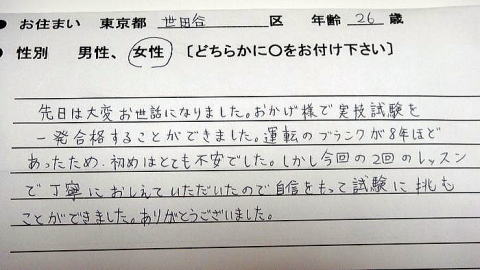 ● お住まい 東京都 世田谷 区 年齢 26 歳
● 性別 男性、 女性 〔どちらかに〇をお付け下さい〕
先日は大変お世話になりました。おかげ様で実技試験を
一発合格することができました。運転のブランクが8年ほど
あったため、初めはとても不安でした。しかし今回の2回のレッスン
で丁寧におしえていただいたので自信をもって試験に挑む
ことができました。ありがとうございました。